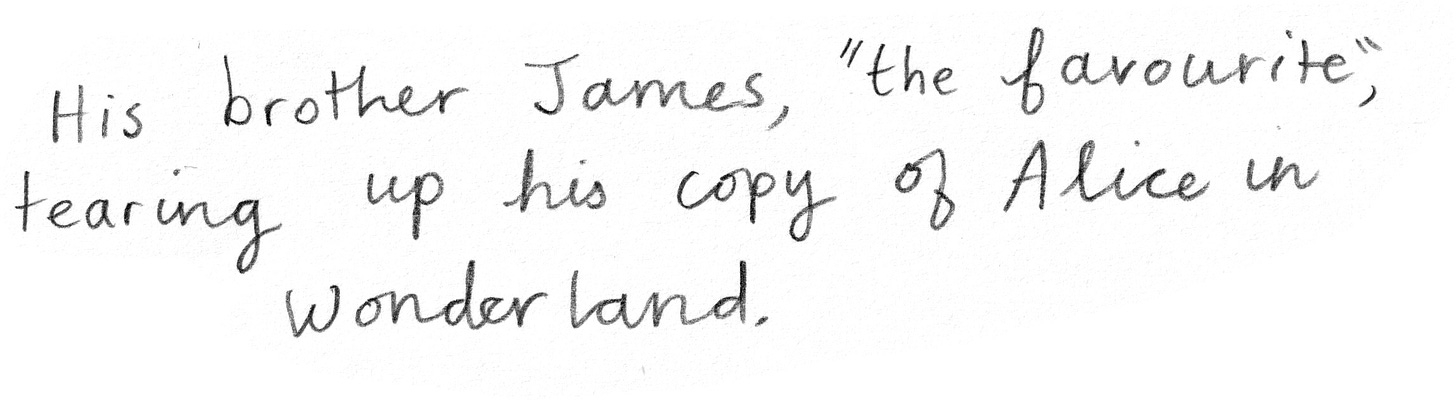 His brother James, "the favourite",
tearing up his copy of Alice in
Wonderland.